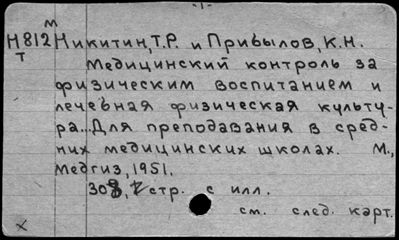 -1-
м
Н812 Никитин,Т.Р. и Привылов, К.Н.
т
Медицинский контроль за
физическим воспитанием и
лечебная физическая культу-
ра...Для преподавания в сред-
них медицинских школах. М.,
Медгиз, 1951.
стр. с илл.
см. след. карт.
х